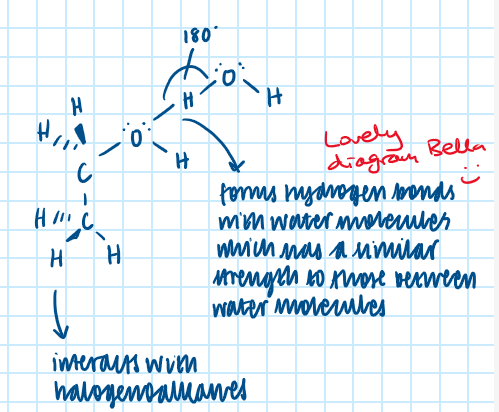 180°
O
H
H
H
O
H
H
C
H
C
H
H
Lovely
diagram Bella
forms hydrogen bonds
with water molecules
which has a similar
strength to those between
water molecules
interacts with
halogenoalkanes